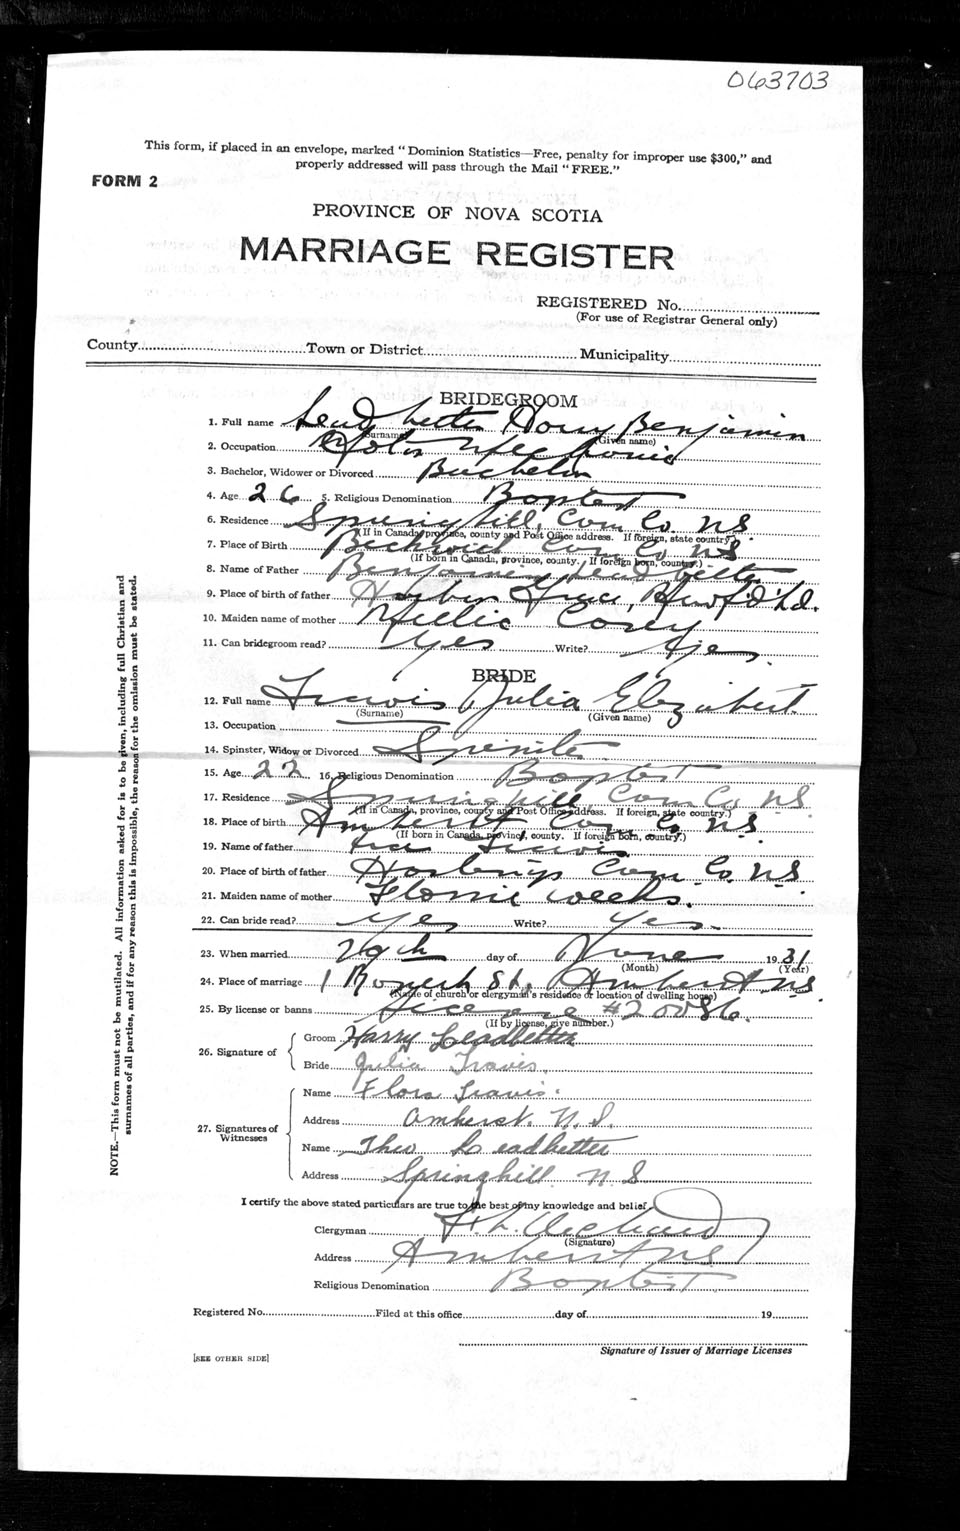 063703
This form, if placed in an envelope, marked "Dominion Statistics—Free, penalty for improper use $300," and
properly addressed will pass through the Mail "FREE."
FORM 2
PROVINCE OF NOVA SCOTIA
MARRIAGE REGISTER
REGISTERED No.
(For use of Registrar General only)
County Town or District Municipality
BRIDEGROOM
1. Full name Leadbetter Harry Benjamin
(Surname) (Given name)
2. Occupation Motor Mechanic
3. Bachelor, Widower or Divorced Bachelor
4. Age 26 5. Religious Denomination Baptist
6. Residence Springhill, Cum Co. N.S.
(If in Canada, province, county and Post Office address. If foreign, state country)
7. Place of Birth Cum Co NS
(If born in Canada, province, county. If foreign born, country.)
8. Name of Father Benjamin Leadbetter
9. Place of birth of father Harbor Grace, Newf'd'l'd.
10. Maiden name of mother Nellie
11. Can bridegroom read? Yes Write? Yes.
BRIDE
12. Full name Travis Julia Elizabeth
(Surname) (Given name)
13. Occupation
14. Spinster, Widow or Divorced Spinster
15. Age 22 16. Religious Denomination Baptist
17. Residence Springhill Cum Co. NS
(If in Canada, province, county and Post Office address. If foreign, state country.)
18. Place of birth Amherst Cum Co NS
(If born in Canada, province, county. If foreign born, country.)
19. Name of father Travis
20. Place of birth of father Hastings Cum. Co. NS
21. Maiden name of mother Weeks.
22. Can bride read? Yes Write? Yes.
23. When married 29th day of June 1931
(Month) (Year)
24. Place of marriage 1 St, Amherst NS.
(Name of church or clergyman's residence or location of dwelling house)
25. By license or banns License #20086.
(If by license, give number.)
26. Signature of
Groom Harry Leadbetter
Bride Julia Travis.
27. Signatures of Witnesses
Name Flora Travis.
Address Amherst. N.S.
Name Theo Leadbetter
Address Springhill N S
I certify the above stated particulars are true to the best of my knowledge and belief.
Clergyman
(Signature)
Address Amherst NS
Religious Denomination Baptist
Registered No. Filed at this office day of 19
Signature of Issuer of Marriage Licenses
[SEE OTHER SIDE]
NOTE.—This form must not be mutilated. All information asked for is to be given, including full Christian and
surnames of all parties, and if for any reason this is impossible, the reason for the omission must be stated.